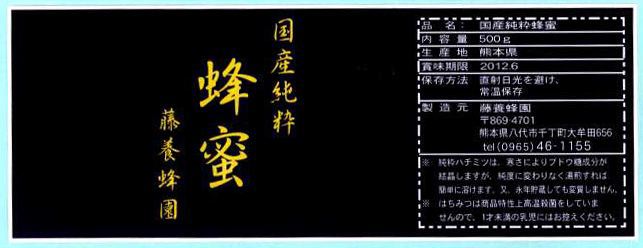 国産純粋
蜂蜜
藤養蜂園
品名： 国産純粋蜂蜜
内容量 500g
生産地 熊本県
賞味期限 2012.6
保存方法 直射日光を避け、
常温保存
製造元 藤養蜂園
〒869-4701
熊本県八代市千丁町大牟田656
tel(0965)46-1155
※ 純粋ハチミツは、寒さによりブドウ糖成分が
結晶しますが、純度に変わりなく湯煎すれば
簡単に溶けます。又、永年貯蔵しても変質しません。
※ はちみつは商品特性上高温殺菌をしていま
せんので、1才未満の乳児にはお控えください。